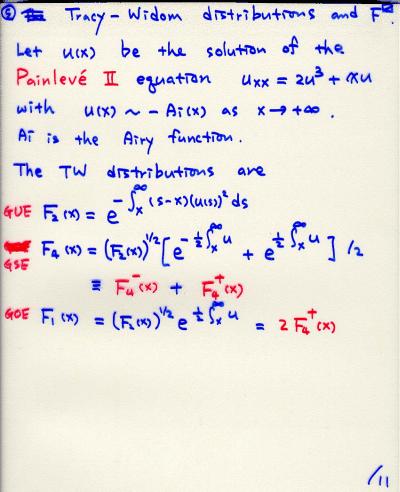 ⑤ Tracy-Widom distributions and F^⊠
Let u(x) be the solution of the
Painlevé II equation u_xx = 2u³ + xu
with u(x) ~ - Ai(x) as x → +∞.
Ai is the Airy function.
The TW distributions are
GUE F₂(x) = e^{-∫_x^∞ (s-x)(u(s))² ds}
GSE F₄(x) = (F₂(x))^{1/2} [e^{-½∫_x^∞ u} + e^{½∫_x^∞ u}] /2
≡ F₄⁻(x) + F₄⁺(x)
GOE F₁(x) = (F₂(x))^{1/2} e^{½∫_x^∞ u} = 2 F₄⁺(x)
/11